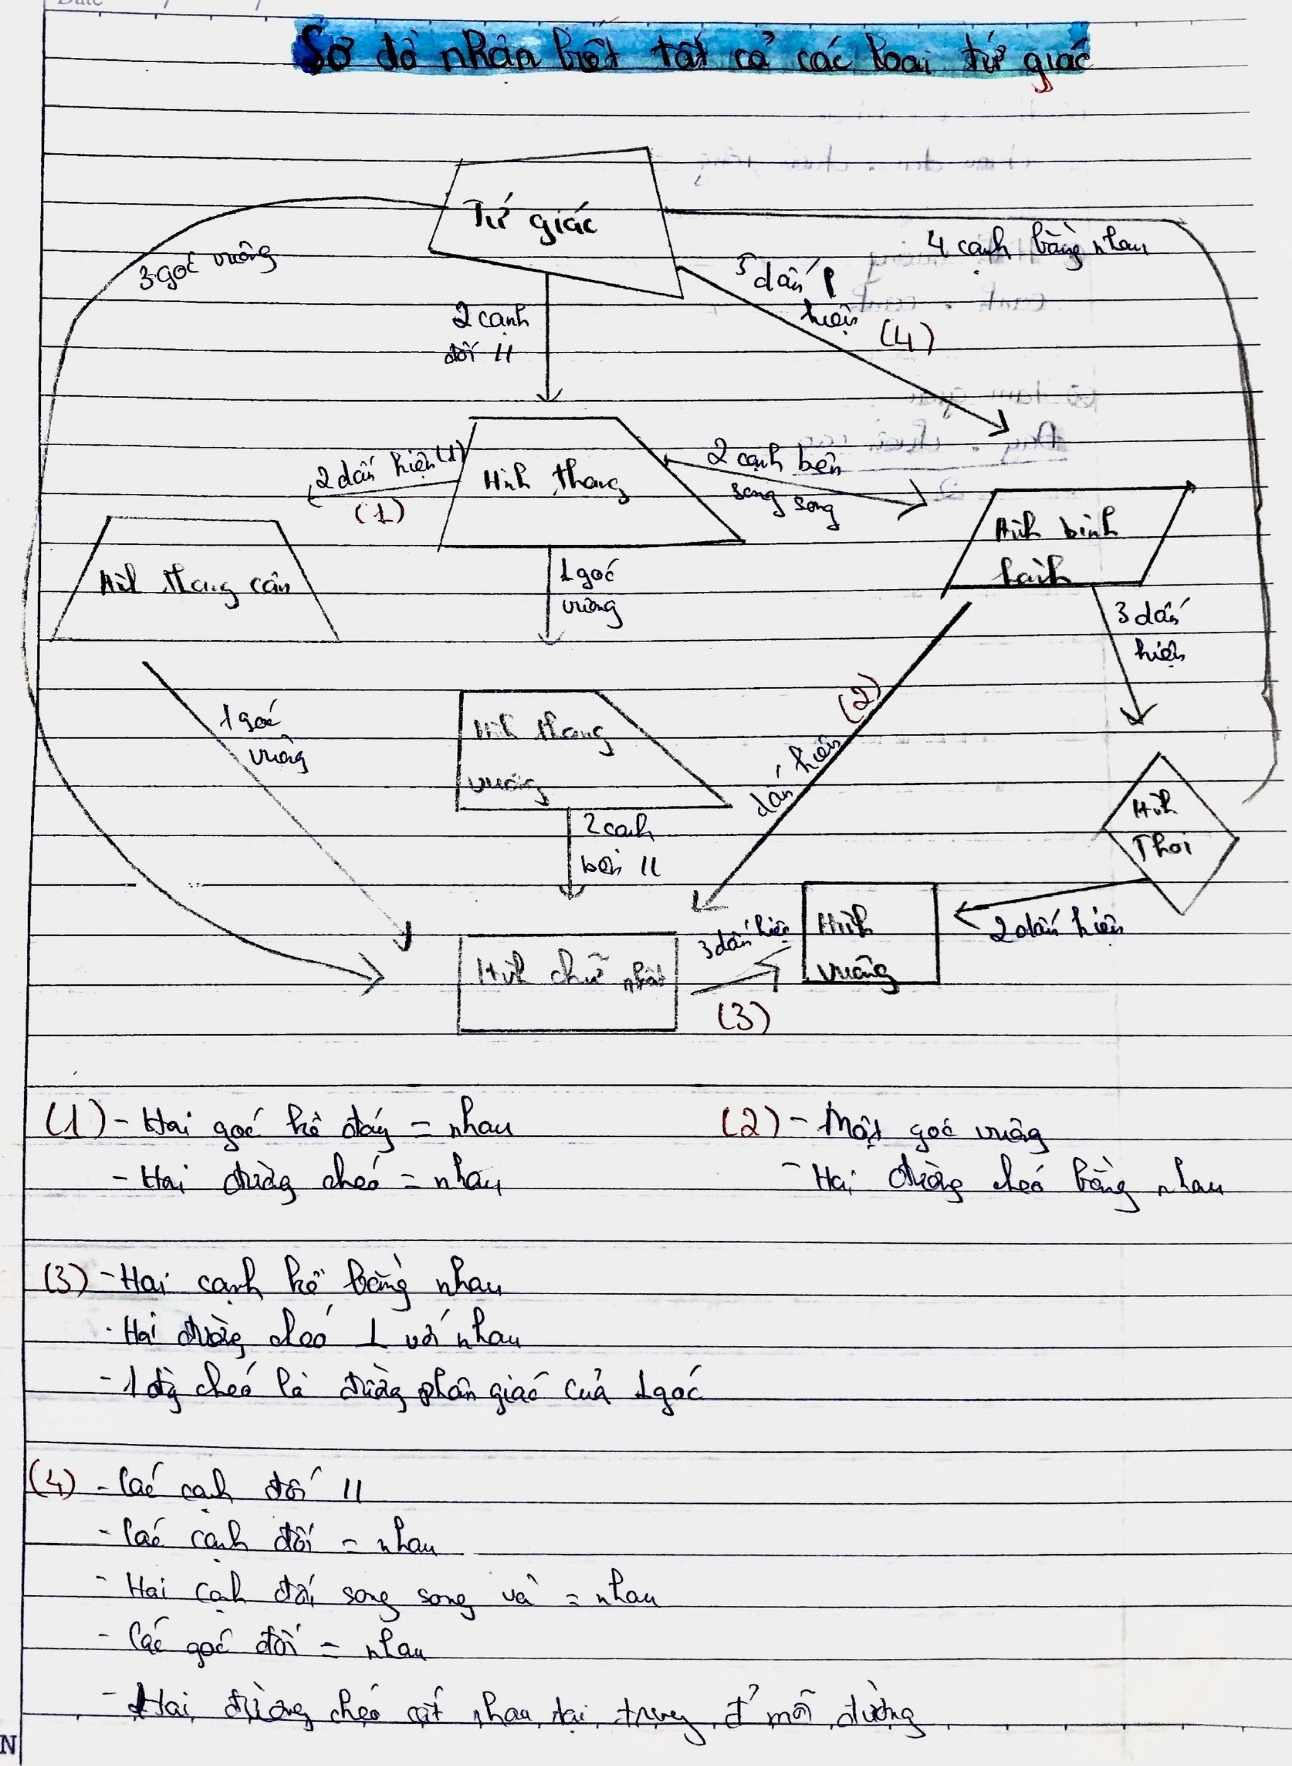 Sơ đồ nhận biết tất cả các loại tứ giác
Tứ giác
3 góc vuông
4 cạnh bằng nhau
5 dấu
hiện (4)
2 cạnh
đối //
2 dấu hiện (1)
(1)
Hình thang
2 cạnh bên
song song
Hình bình
hành
Hình thang cân
1 góc
vuông
3 dấu
hiện
1 góc
vuông
Hình thang
vuông
dấu hiện (2)
2 cạnh
bên //
Hình
Thoi
2 dấu hiện
Hình
vuông
3 dấu hiện
(3)
Hình chữ nhật
(1) - Hai góc kề đáy = nhau
- Hai đường chéo = nhau
(2) - Một góc vuông
- Hai đường chéo bằng nhau
(3) - Hai cạnh kề bằng nhau
- Hai đường chéo ⊥ với nhau
- 1 đg chéo là đường phân giác của 1 góc
(4) - Các cạnh đối //
- Các cạnh đối = nhau
- Hai cạnh đối song song và = nhau
- Các góc đối = nhau
- Hai đường chéo cắt nhau tại trung đ' mỗi đường
N